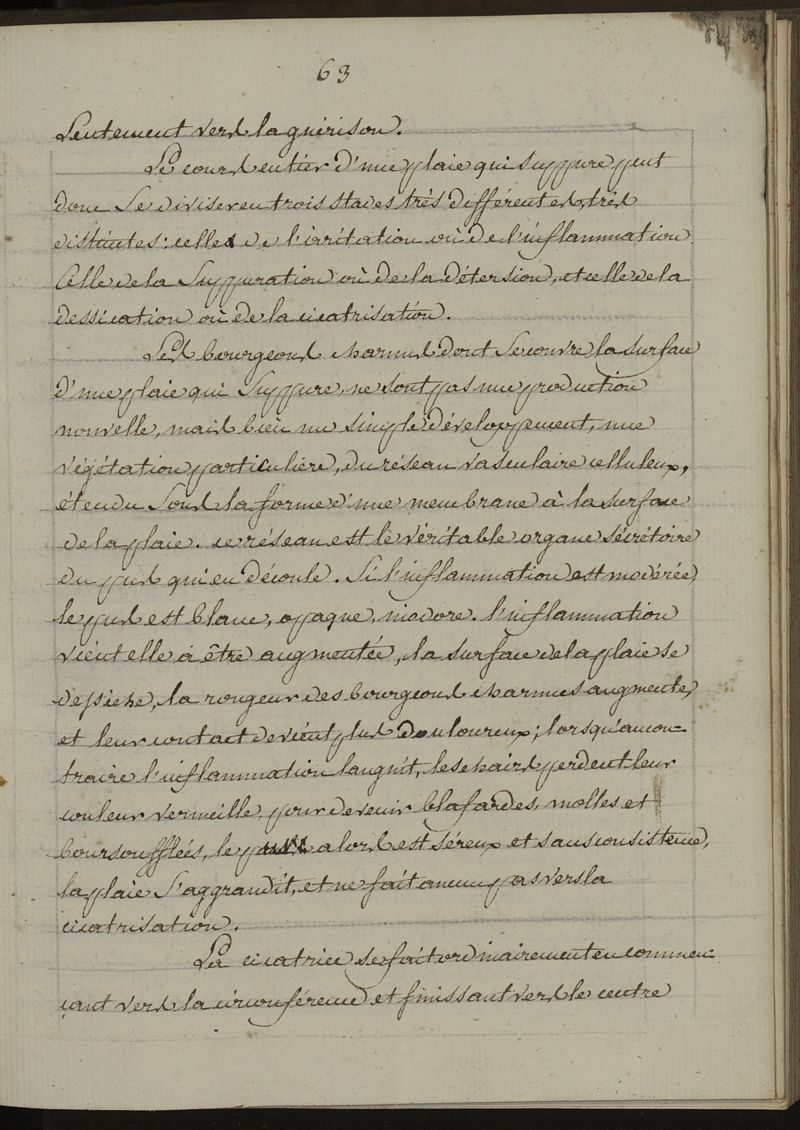 63
Lentement vers la guérison.
Le cours entier d'une plaie qui suppure peut
donc se diviser en trois stades très différentes, très
distinctes: celles de l'irritation où de l'inflammation
Celle de la Suppuration où de la détersion, et celle de la
dessication où de la cicatrisation.
Les bourgeons charnus dont se couvre la surface
d'une plaie qui Suppure, ne sont pas une production
nouvelle, mais bien un simple développement, une
végétation particulière, du réseau vasculaire celluleux,
étendu Sous la forme d'une membrane à la surface
de la plaie. ce réseau est lè véritable organe sécrétoire
du pus qui en découle. Si l'inflammation est modérée,
le pus est blanc, opaque, inodore. l'inflammation
vient elle à être augmentée, la surface de la plaie se
dessèche, la rougeur des bourgeons charnues augmente,
et leur contact devient plus douloureux; lorsqu'au con=
traire l'inflammation languit, les chairs perdent leur
couleur vermeille, pour devenir blafardes, molles et
boursoufflées, le pus alors est séreux et sans consistence,
la plaie S'aggrandit, et ne fait aucun pas vers la
cicatrisation.
La cicatrice se fait ordinairement en commen=
çant vers la circonférence et finissant vers le centre